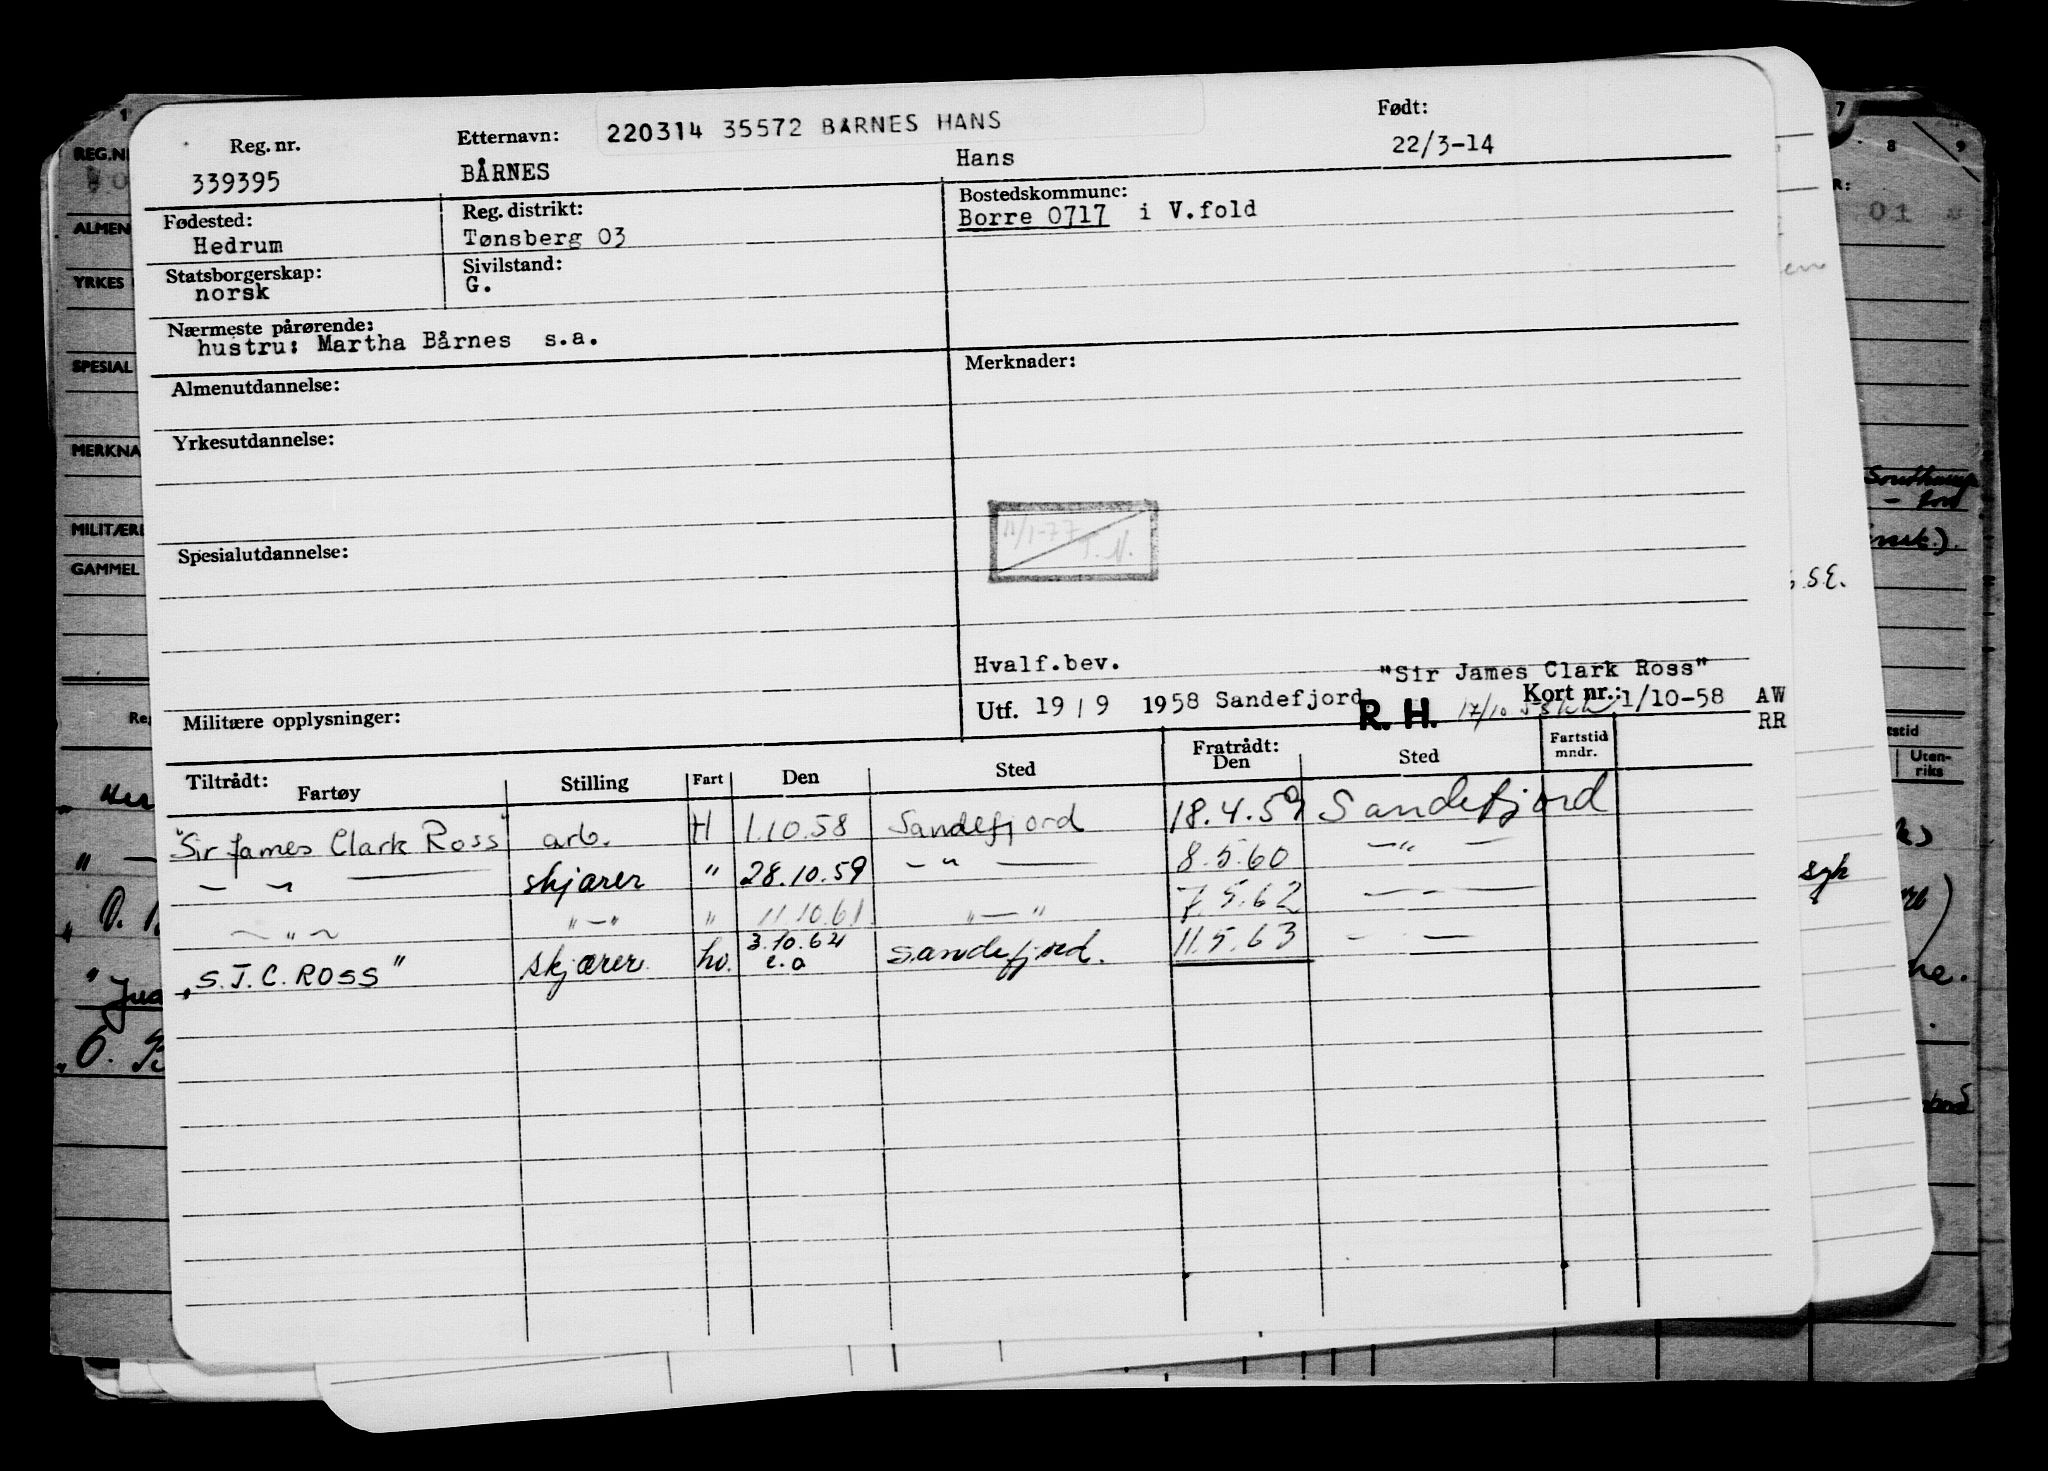 220314 35572 BARNES HANS
Reg. nr. Etternavn: Født:
339395 BÅRNES Hans 22/3-14
Fødested: Reg. distrikt: Bostedskommune:
Hedrum Tønsberg 03 Borre 0717 i V.fold
Statsborgerskap: Sivilstand:
norsk G.
Nærmeste pårørende:
hustru: Martha Bårnes s.a.
Almenutdannelse: Merknader:
Yrkesutdannelse:
11/1-77 T.N.
Spesialutdannelse:
Hvalf.bev. "Sir James Clark Ross"
Militære opplysninger: Utf. 19/9 1958 Sandefjord R. H. 17/10 58 Kort nr.: 1/10-58 AW
RR
Tiltrådt: Fratrådt:
Fartøy Stilling Fart Den Sted Den Sted Fartstid mndr.
"Sir James Clark Ross" arb. H 1.10.58 Sandefjord 18.4.59 Sandefjord
— " — skjærer " 28.10.59 — " — 8.5.60 — " —
— " — " — " " 11.10.61 " — " 7.5.62 — " —
"S.J.C. ROSS" skjærer hv. 3.10.62 e.a Sandefjord. 11.5.63 — " —
REG.NR
ALMEN
YRKES
SPESIAL
MERKNA
MILITÆRE
GAMMEL
1
7
8
9
R:
01
S.SE.
syk
Uten-
riks